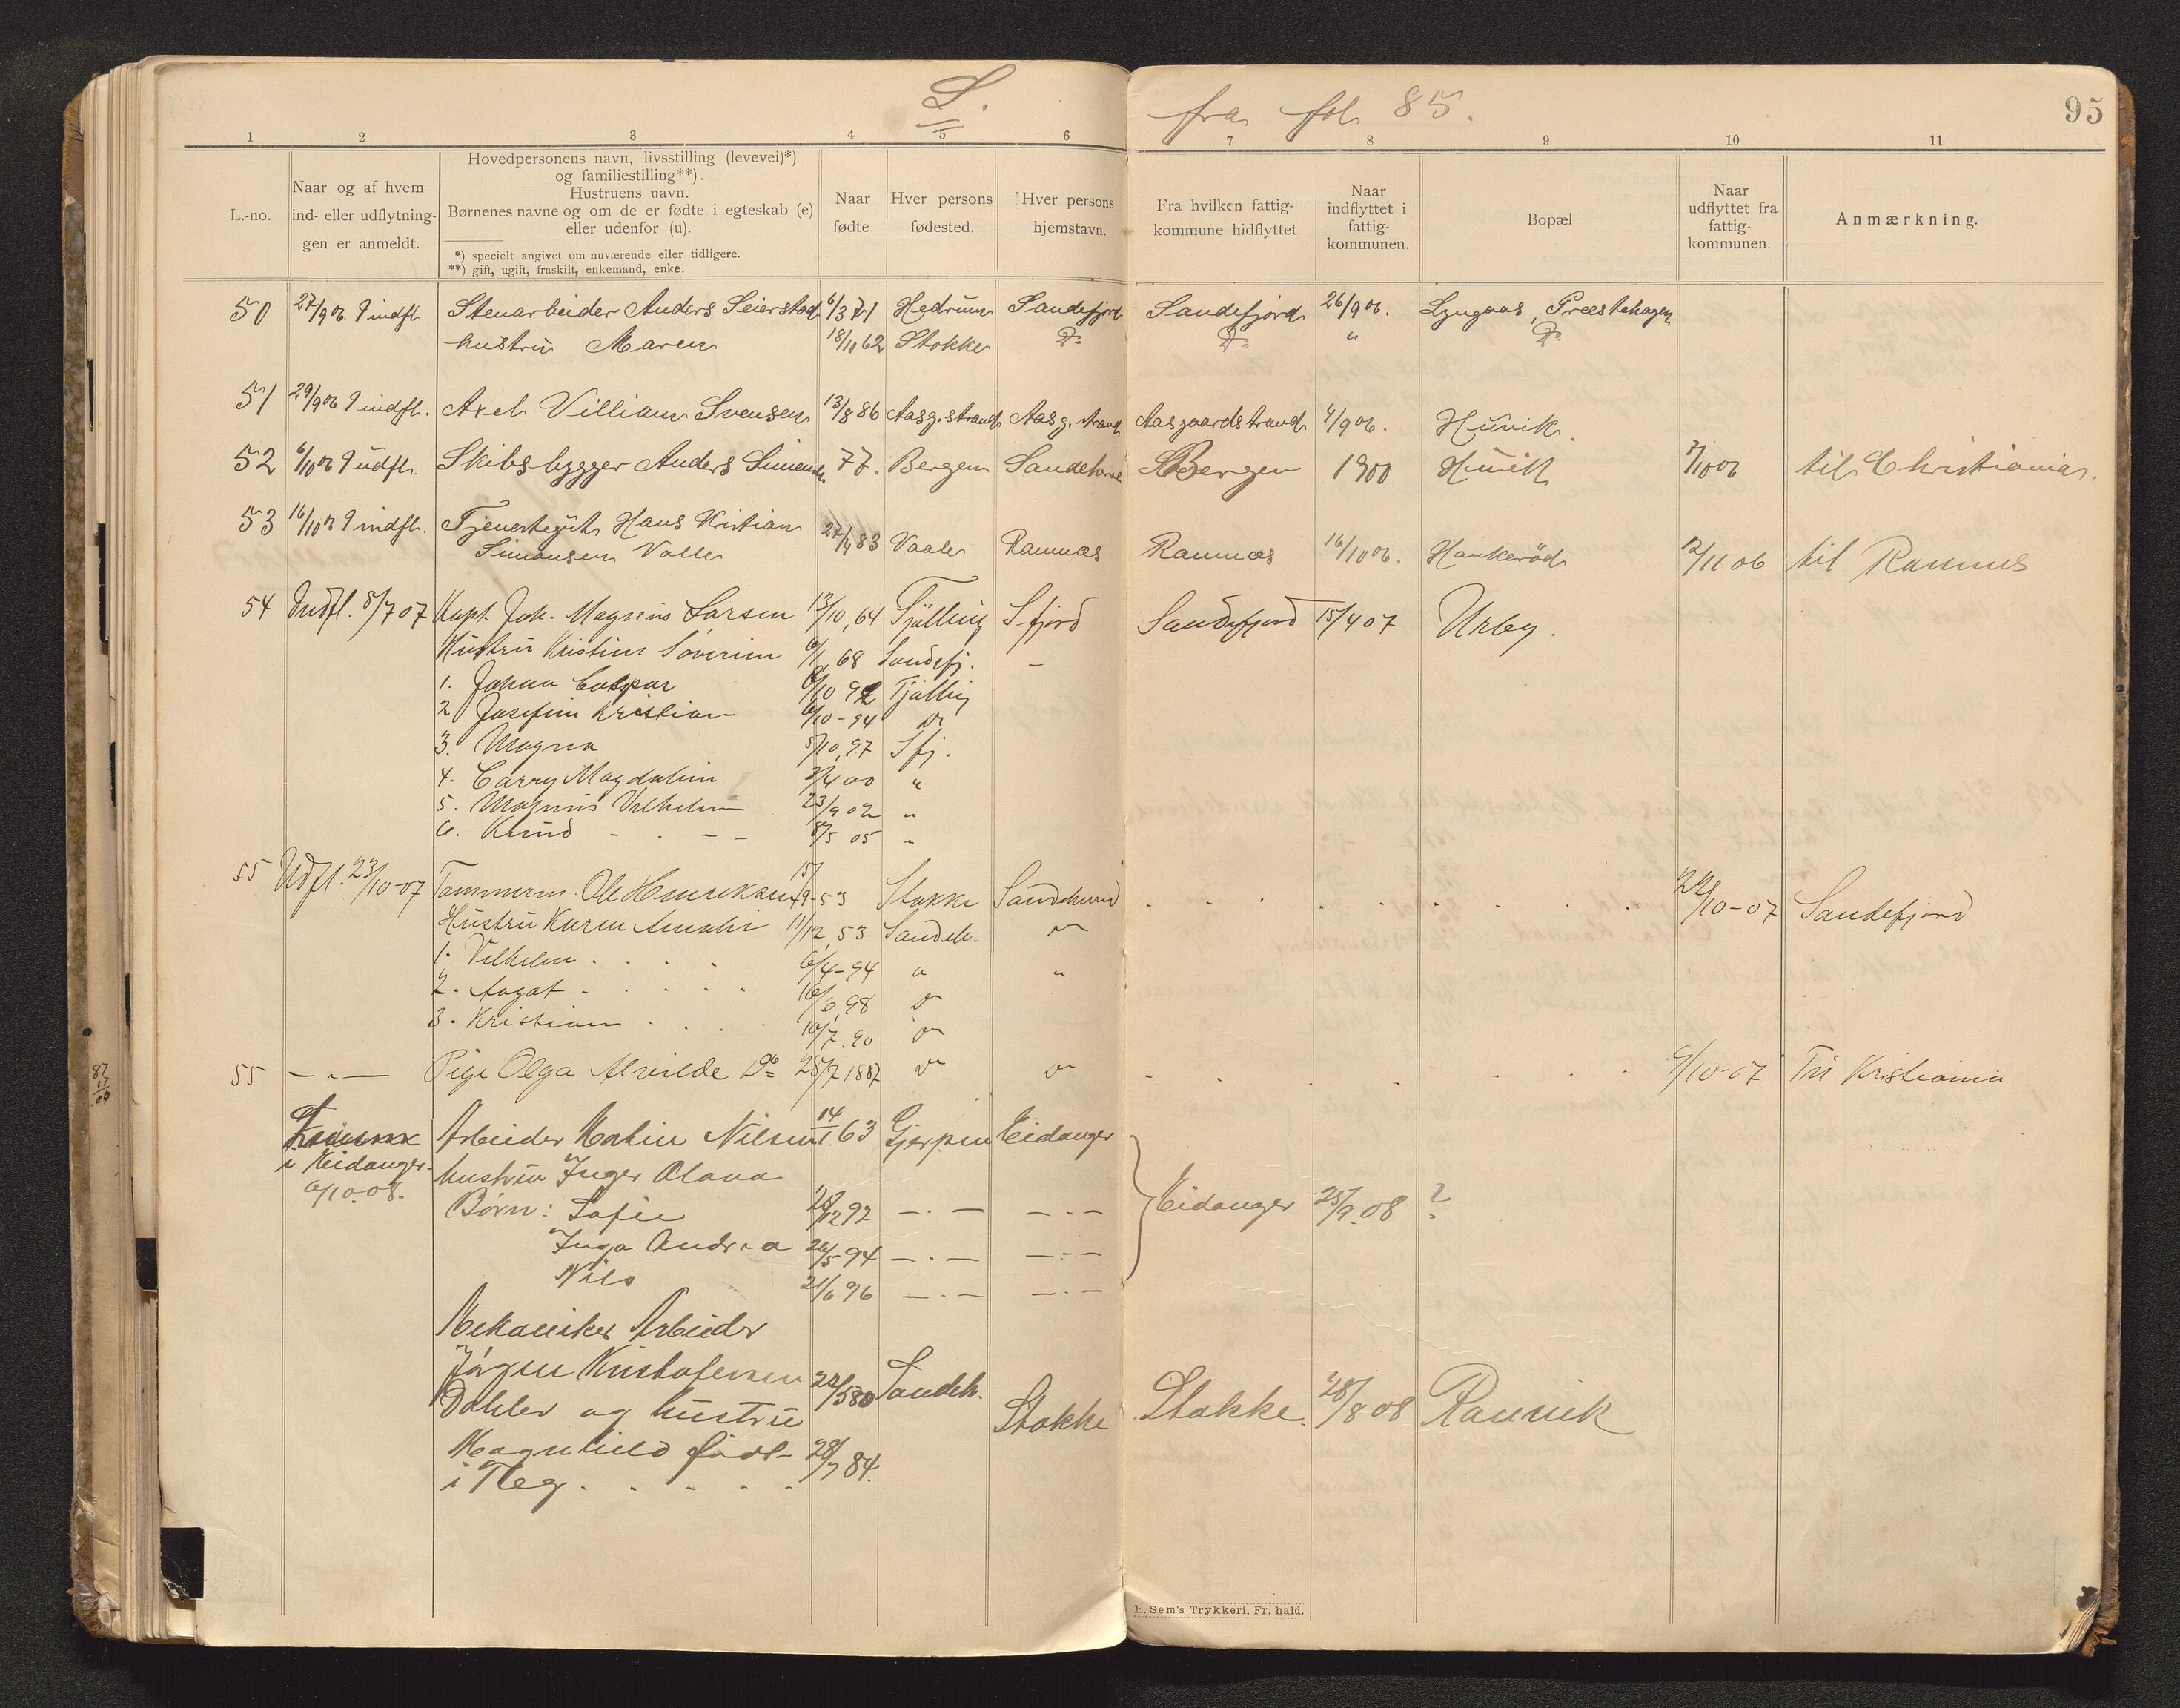 S. fra fol 85. 95
1 2 3 4 5 6 7 8 9 10 11
L.-no.
Naar og af hvem
ind- eller udflytnin-
gen er anmeldt.
Hovedpersonens navn, livsstilling (levevei)*)
og familiestilling**).
Hustruens navn.
Børnenes navne og om de er fødte i egteskab (e)
eller udenfor (u).
*) specielt angivet om nuværende eller tidligere.
**) gift, ugift, fraskilt, enkemand, enke.
Naar
fødte
Hver persons
fødested.
Hver persons
hjemstavn.
Fra hvilken fattig-
kommune hidflyttet.
Naar
indflyttet i
fattig-
kommunen.
Bopæl
Naar
udflyttet fra
fattig-
kommunen.
Anmærkning.
50 27/9 06 indfl. Stenarbeider Anders Seierstad 6/3 71 Hedrum Sandefjord Sandefjord 26/9 06. Lyngaas, Præstehagen
hustru Maren 18/10 62 Stokke Do Do " Do
51 29/9 06 indfl. Axel Villiam Svensen 13/8 86 Aasg.strand Aasg.strand Aasgaardstrand 4/9 06. Huvik.
52 6/10 06 udfl. Skibsbygger Anders 77. Bergen Bergen 1900 Huvik 7/10 06 til Christiania.
53 16/10 indfl. Tjenestegut Hans Kristian
Simonsen Valle 27/4 83 Vaale Ramnæs Ramnæs 16/10 06. Haukerød 12/11 06 til Ramnes
54 Indfl. 8/7 07 Kapt. Joh. Magnus Larsen 13/10, 64 Tjølling S.fjord Sandefjord 15/4 07 Urby.
Hustru Kristine Søverine 6/1, 68 Sandefj. –
1. Johan Caspar 6/10 92 Tjølling
2 Josefine Kristian 6/10 - 94 Do
3. Magna 5/10, 97 Sfj.
4. Carry Magdaline 3/4 00 "
5. Magnus Vilhelm 23/9 02 "
6. Knud - . - - 8/5 05 "
55 Udfl. 23/10-07 Tømmerm. Ole Henriksen 15/9-53 Stokke Sandeherred . . . . . . . 22/10-07 Sandefjord
Hustru Karen Amalie 11/12, 53 Sandeh. Do
1. Vilhelm . . . 6/4-94 " "
2. August . . . . 16/6, 98 Do
3. Kristian . . . . 10/7. 90 Do
55 — " — Pige Olga Alvilde Do 28/7 1887 Do Do . . . . . . 9/10-07 Til Kristiania
i Eidanger
6/10.08. Arbeider Martin Nilsen 14/1. 63 Gjerpen Eidanger
hustru Inger Olava
Børn: Sofie 12 92 — . — — . — Eidanger 25/9. 08 ?
Inga Andrea 26/5-94 — . — — . —
Nils 21/6 96 — . — — . —
Mekaniker Arbeider
Jørgen Kristofersen
Dahler og hustru 28/5 80 Sandeh. Stokke Stokke. 28/8 08 Ranvik
Magnhild født 28/7 84.
i Tbg. . . . . .
E. Sem's Trykkeri, Fr. hald.